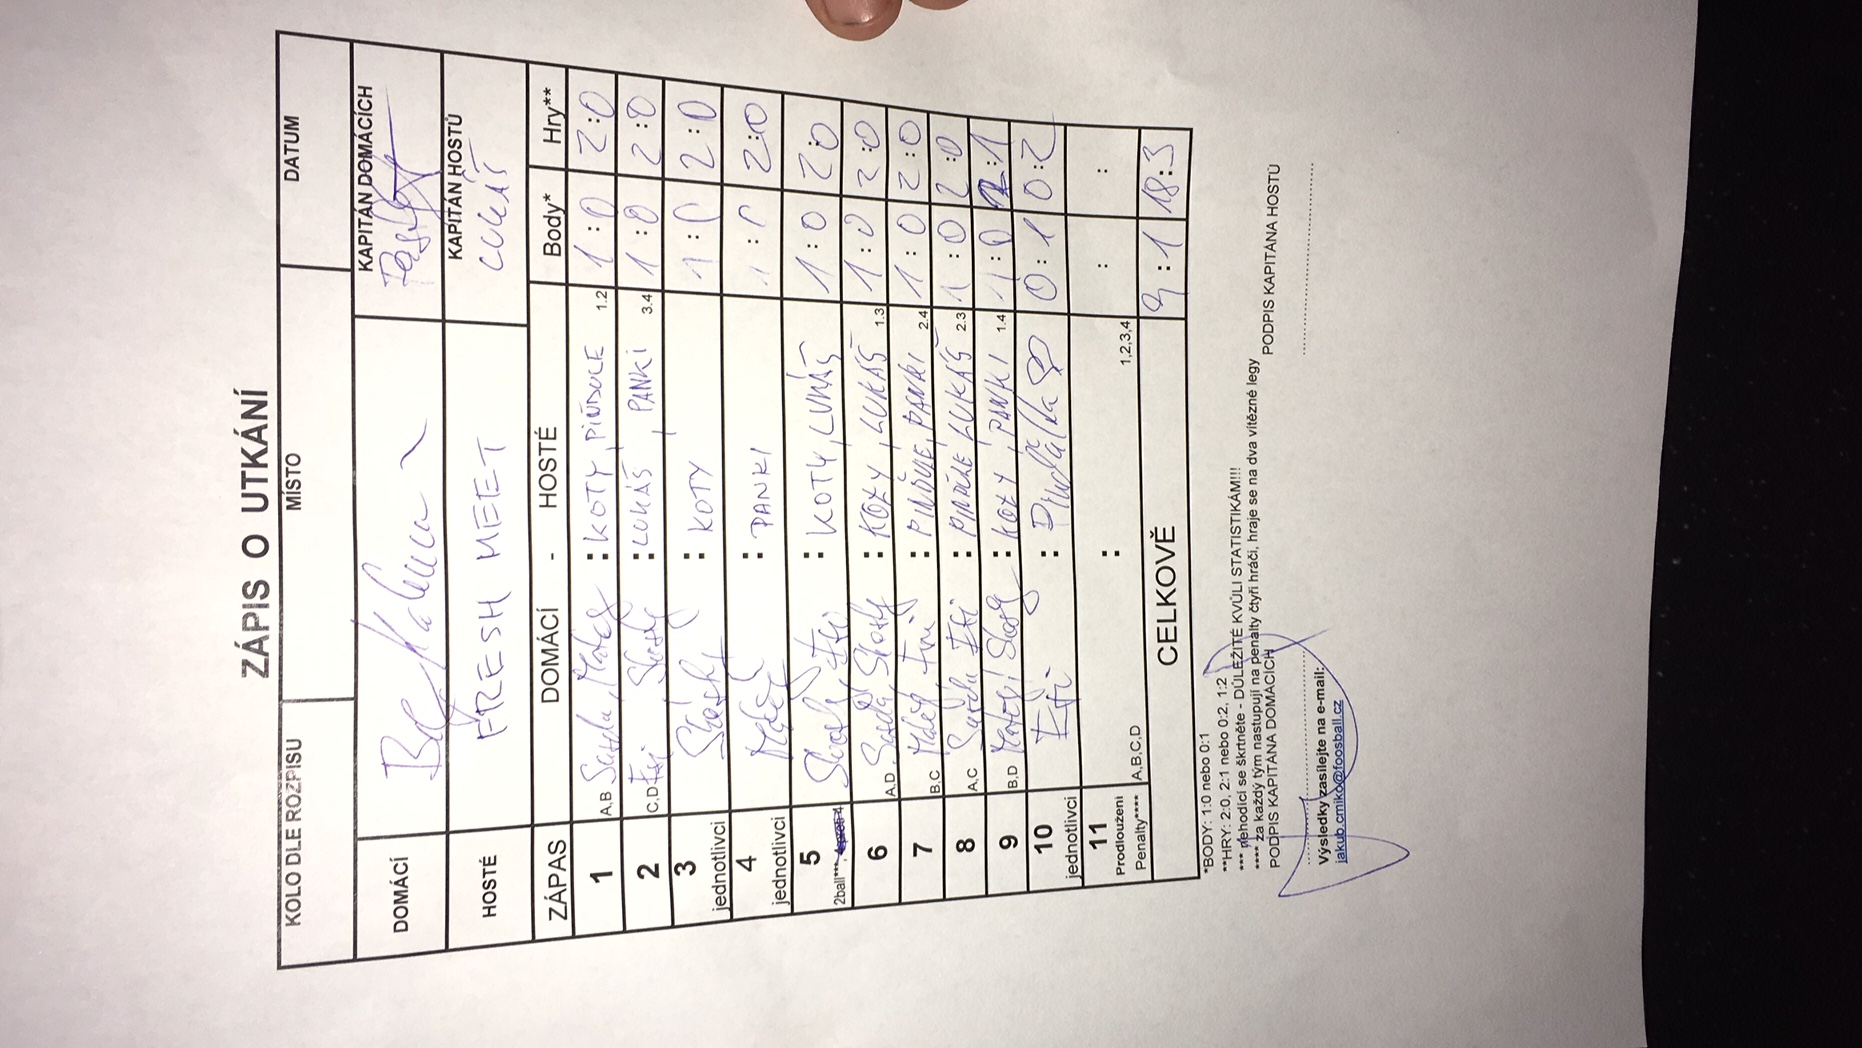 ZÁPIS O UTKÁNÍ
KOLO DLE ROZPISU MÍSTO DATUM
DOMÁCÍ KAPITÁN DOMÁCÍCH
HOSTÉ FRESH MEET KAPITÁN HOSTŮ LUKÁŠ
ZÁPAS DOMÁCÍ - HOSTÉ Body* Hry**
1 A,B : KOTY, PINĎULE 1.2 1:0 2:0
2 C,D : LUKÁŠ, PANKI 3.4 1:0 2:0
3 jednotlivci Shosty : KOTY 1:0 2:0
4 jednotlivci Matěj : PANKI 1:0 2:0
5 2ball*** : KOTY, LUKÁŠ 1:0 2:0
6 A,D Shosty : KOTY, LUKÁŠ 1.3 1:0 2:0
7 B,C Matěj : PINĎULE, PANKI 2.4 1:0 2:0
8 A,C : PINĎULE, LUKÁŠ 2.3 1:0 2:0
9 B,D Matěj : KOTY, PANKI 1.4 1:0 2:1
10 jednotlivci : 0:1 0:2
11 Prodloužení Penalty**** A,B,C,D : 1,2,3,4 : :
CELKOVĚ 9:1 18:3
*BODY: 1:0 nebo 0:1
**HRY: 2:0, 2:1 nebo 0:2, 1:2
*** nehodící se škrtněte - DŮLEŽITÉ KVŮLI STATISTIKÁM!!!
**** za každý tým nastupují na penalty čtyři hráči, hraje se na dva vítězné legy
PODPIS KAPITÁNA DOMÁCÍCH PODPIS KAPITÁNA HOSTŮ
Výsledky zasílejte na e-mail:
jakub.crniko@foosball.cz